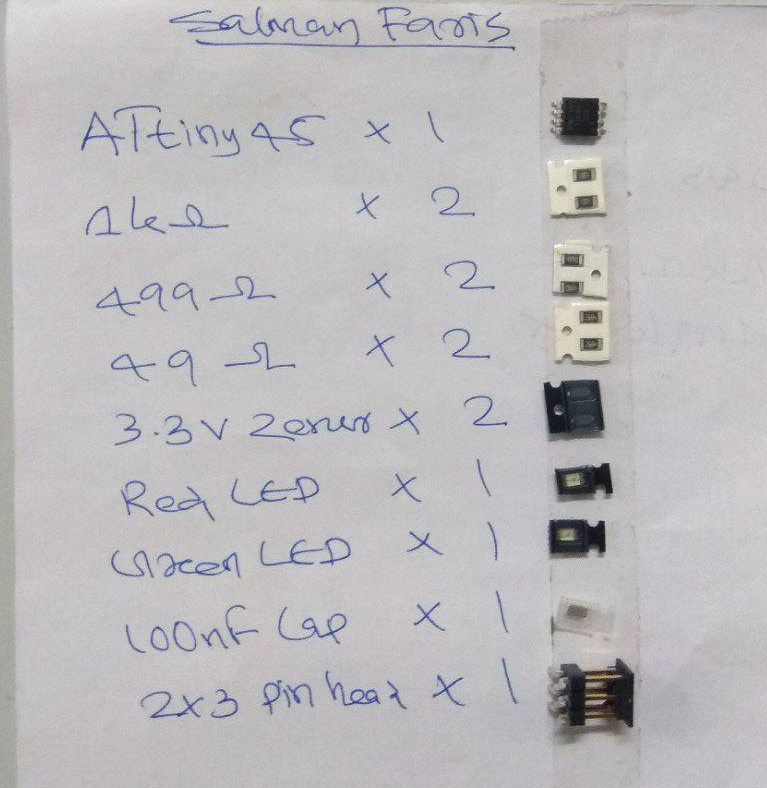 Salman Faris
ATtiny45 x 1
1kΩ x 2
499Ω x 2
49Ω x 2
3.3V Zener x 2
Red LED x 1
Green LED x 1
100nF Cap x 1
2x3 Pin head x 1